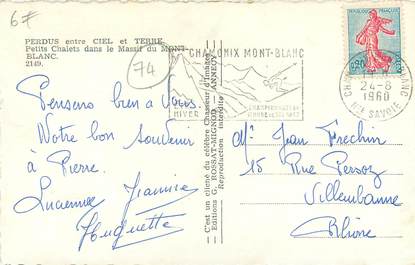 6F
PERDUS entre CIEL et TERRE.
Petits Chalets dans le Massif du MONT-
BLANC.
2149.
74
CHAMONIX MONT-BLANC
HIVER
REPUBLIQUE FRANÇAISE
0,20
24-8
1960
Hte SAVOIE
C'est un cliché du célèbre Chasseur d'Images
Editions G. ROSSAT-MIGNOD - ANNECY
Reproduction interdite
Pensons bien à Vous.
Notre bon souvenir
à Pierre.
Lucienne Jeannine
Huguette
Mr Jean Frechin
15 Rue Persoz
Villeurbanne
Rhône